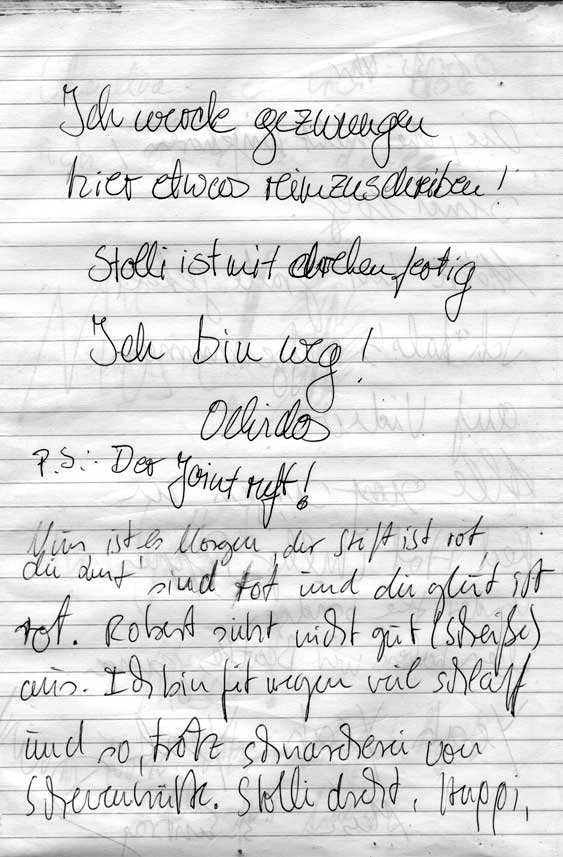 Ich werde gezwungen
hier etwas reinzuschreiben!
Stolli ist mit drehen fertig
Ich bin weg!
P.S.: Der Joint ruft!
Nun ist es Morgen, der Stift ist rot,
die sind tot und die glut ist
rot. Robert sieht nicht gut (Scheiße)
aus. Ich bin fit wegen viel schlaff
und so, trotz schnarcherei von
Stolli dreht, Huppi,